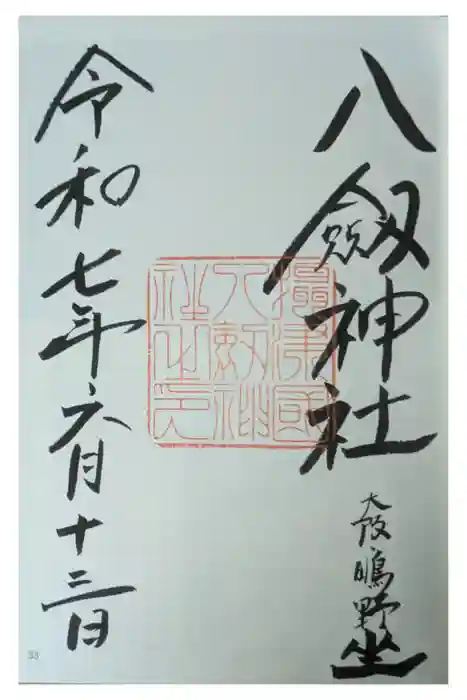 八劔神社
大阪鴫野坐
攝津國
八劔神
社之印
令和七年六月十三日
33